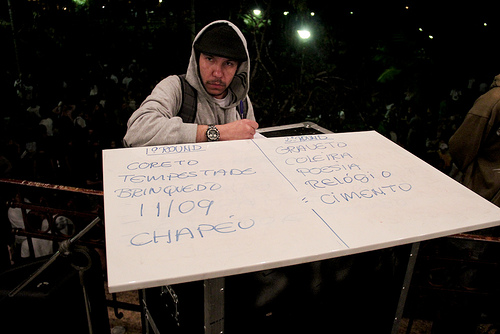 1º ROUND
CORETO
TEMPESTADE
BRINQUEDO
11/09
CHAPÉU
2º ROUND
GRAVETO
COLEIRA
POESIA
RELÓGIO
CIMENTO